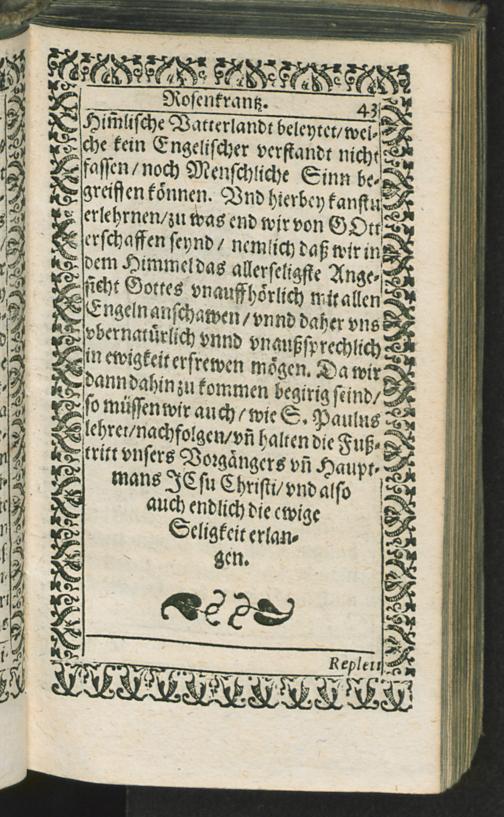 Rosenkrantz.
43
Him̃lische Vatterlandt beleytet/wel-
che kein Engelischer verstandt nicht
fassen/noch Menschliche Sinn be-
greiffen können. Vnd hierbey kanstu
erlehrnen/zu was end wir von GOtt
erschaffen seynd/ nemlich daß wir in
dem Himmel das allerseligste Ange-
sicht Gottes vnauffhörlich mit allen
Engeln anschawen/vnnd daher vns
vbernatürlich vnnd vnaußsprechlich
in ewigkeit erfrewen mögen. Da wir
dann dahin zu kommen begirig seind/
so müssen wir auch/wie S. Paulus
lehret/nachfolgen/vñ halten die Fuß-
tritt vnsers Vorgängers vñ Haupt-
mans JEsu Christi/vnd also
auch endlich die ewige
Seligkeit erlan-
gen.
Replett